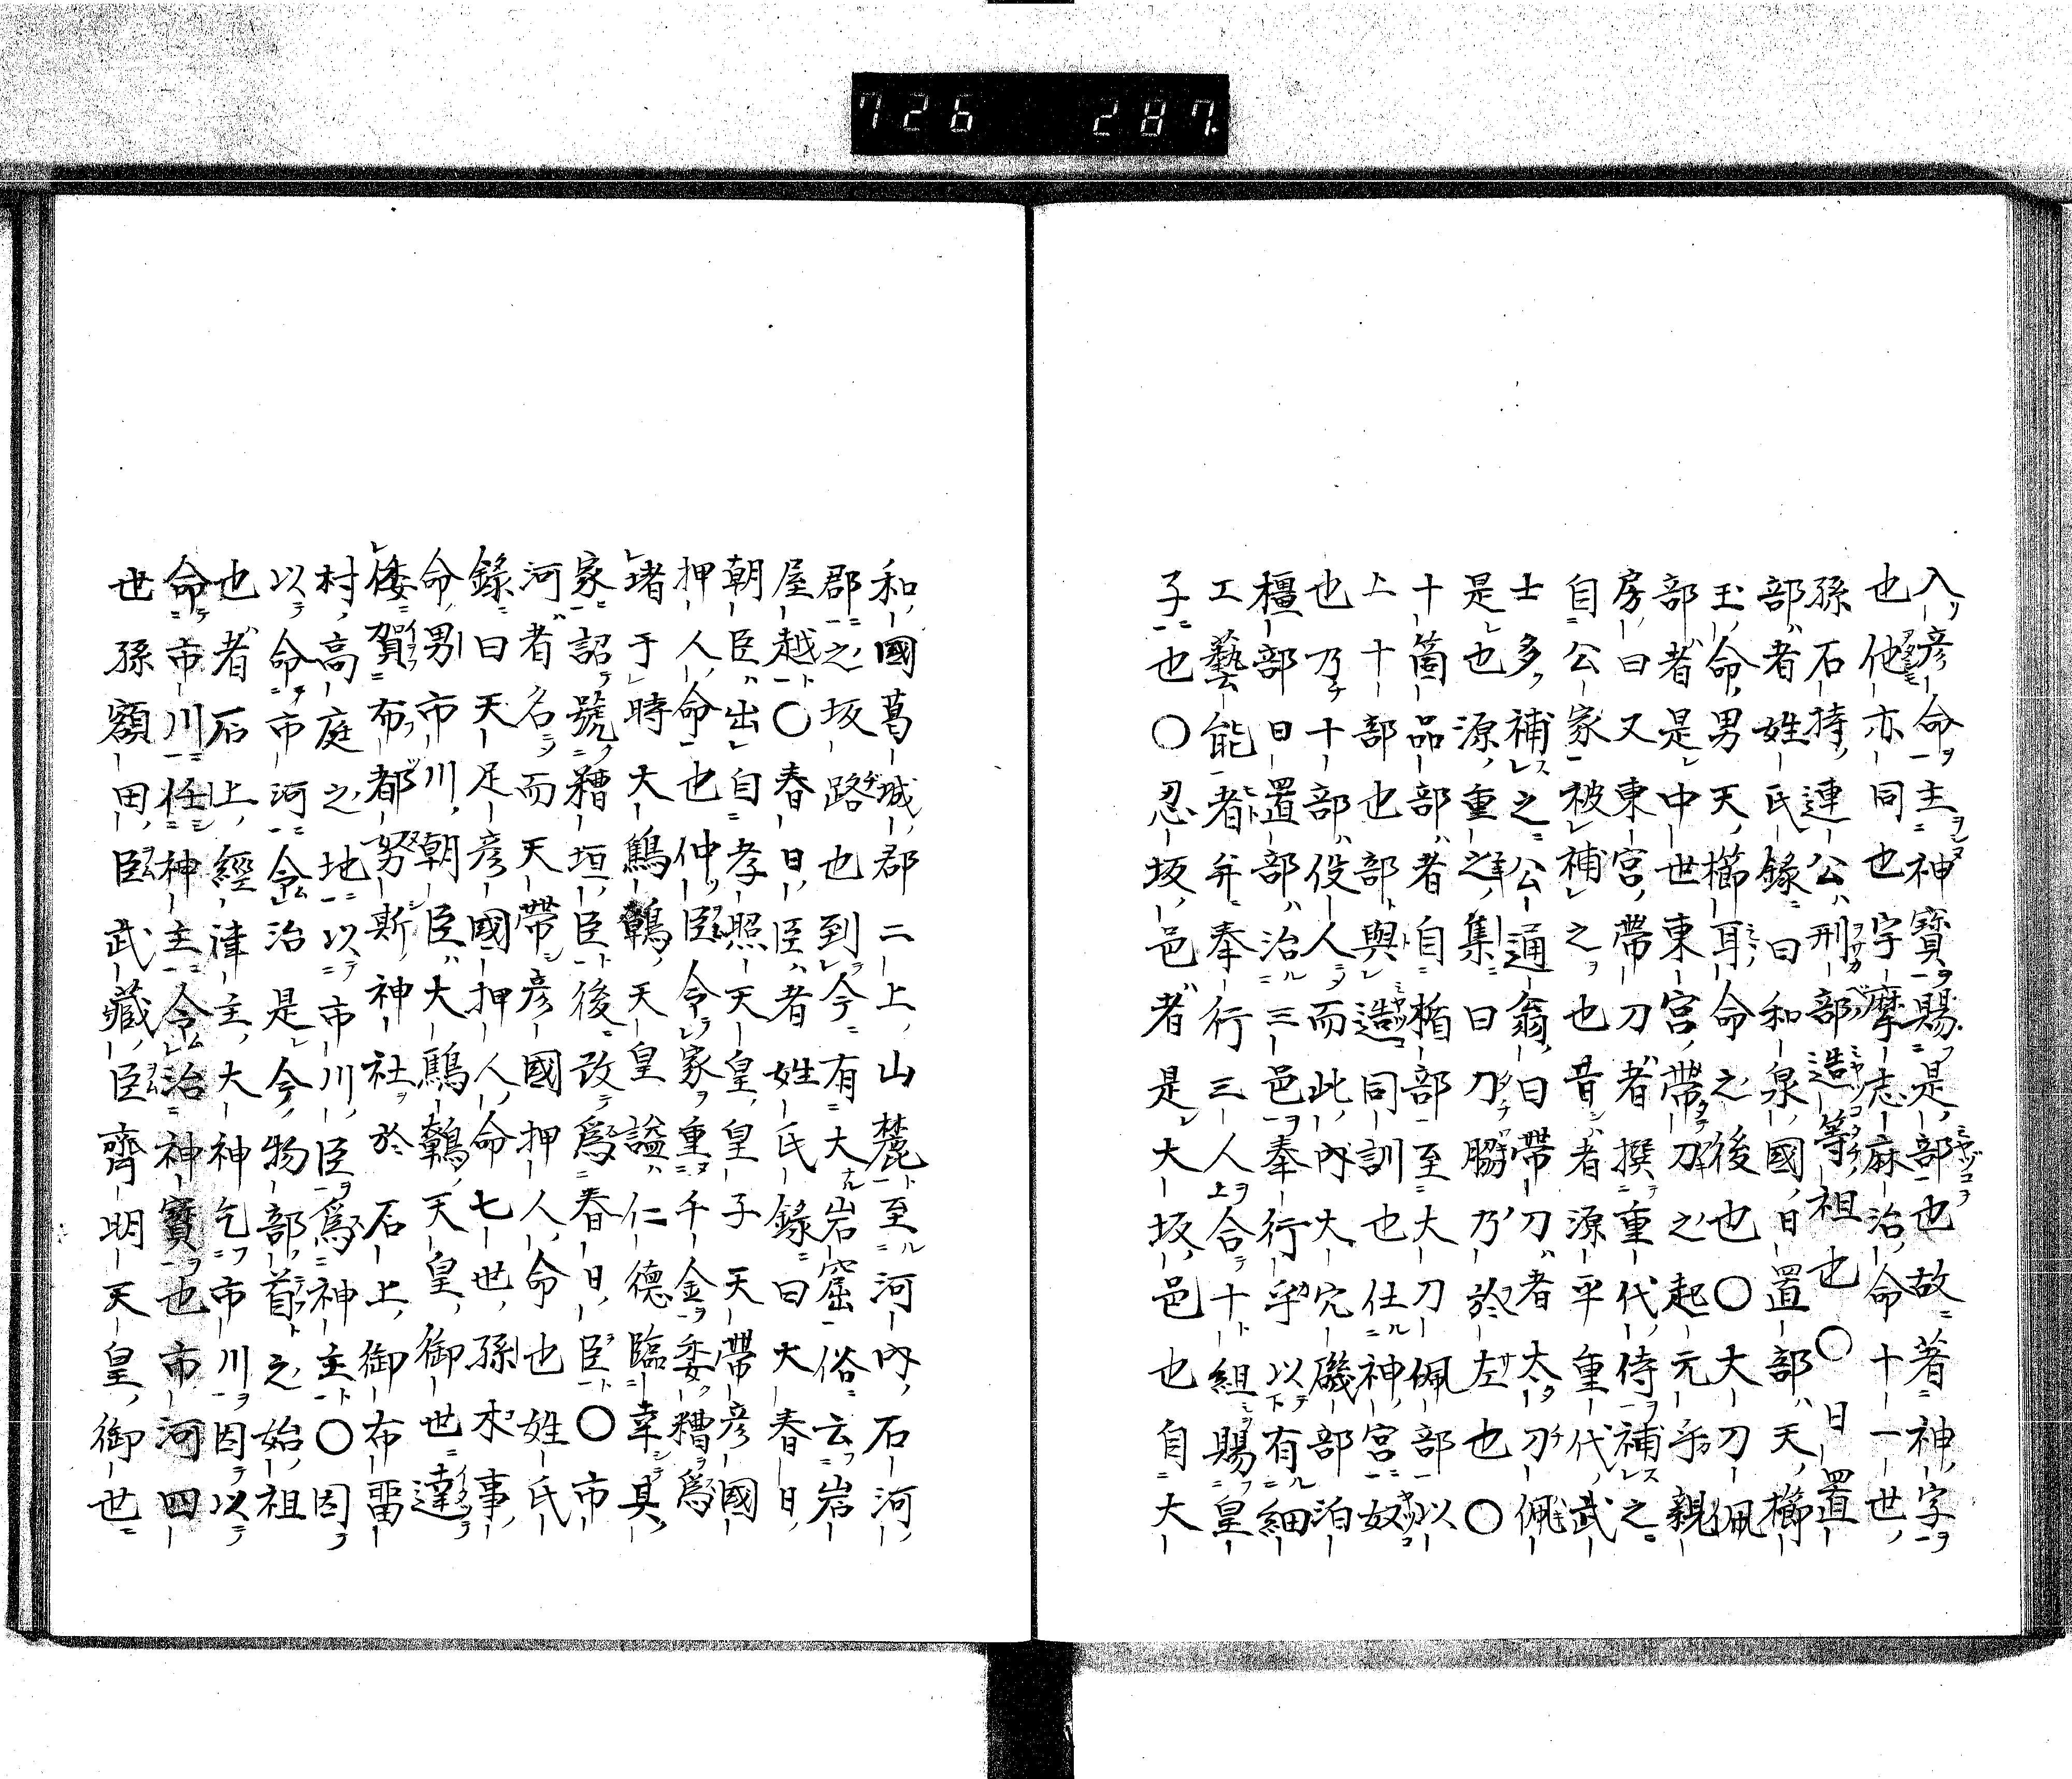 726 287
入彦命主神寶賜是部也故著神字
也他亦同也字摩志麻治命十一世
孫石持連公刑部造等祖也〇日置
部者姓氏錄曰和泉國日置部天櫛
玉命男天櫛耳命之後也〇大刀佩
部者是中世東宮帶刀之起元乎親
房曰又東宮帶刀者撰重代侍補之
自公家被補之也昔者源平重代武
士多補之公通翁曰帶刀者太刀佩
是也源重之集曰刀脇乃於左也〇
十箇品部者自楯部至大刀佩部以
上十部也部與造同訓也仕神宮奴
也乃十部役人而此內大穴磯部泊
橿部日置部治三邑奉行乎以有細
工藝能者弁奉行三人合十組賜皇
子也〇忍坂邑者是大坂邑也自大
和國葛城郡二上山麓至河內石河
郡之坂路也到今有大岩窟俗云岩
屋越〇春日臣者姓氏錄曰大春日
朝臣出自孝照天皇皇子天帶彦國
押人命也仲臣令家重千金委糟爲
堵于時大鷦鷯天皇諡仁德臨幸其
家詔號糟垣臣後改爲春日臣〇市
河者名而天帶彦國押人命也姓氏
錄曰天足彦國押人命七世孫米事
命男市川朝臣大鷦鷯天皇御世達
倭賀布都努斯神社於石上御布畱
村高庭之地以市川臣爲神主〇因
以命市河令治是今物部首之始祖
也者石上經津主大神乞市川因以
命市川任神主令治神寶也市河四
世孫額田臣武藏臣齊明天皇御世